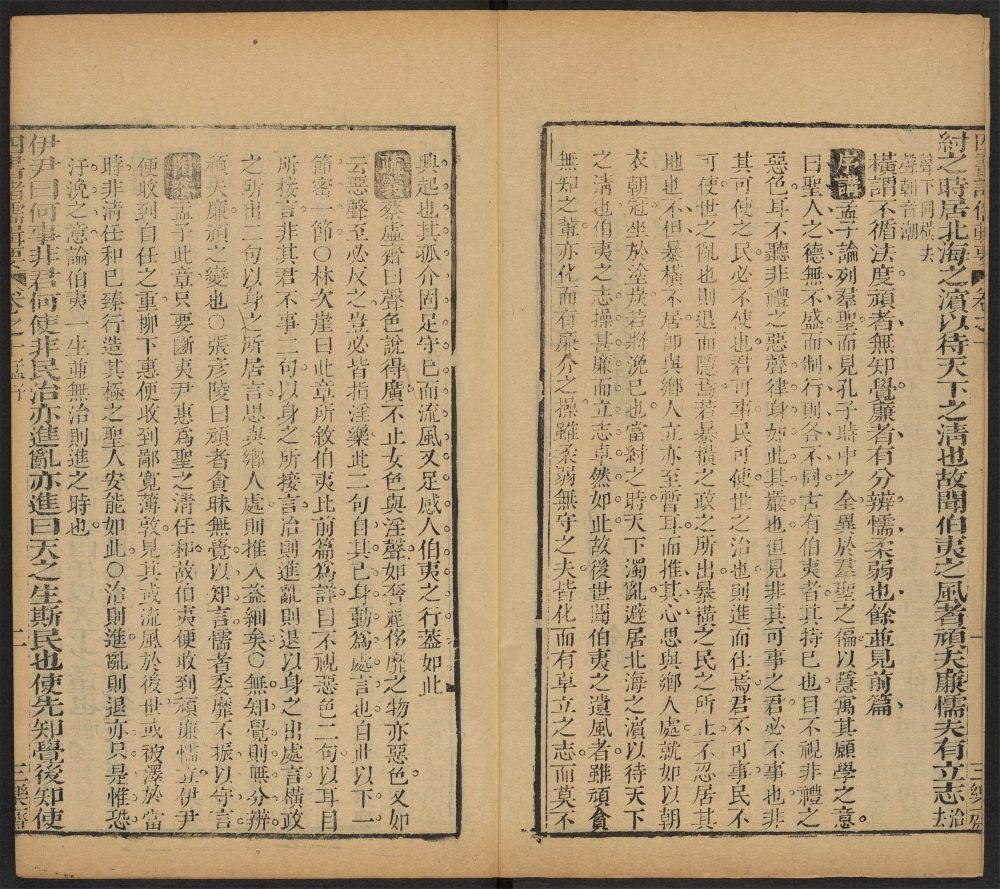 紂之時居北海之濱以待天下之清也故聞伯夷之風者頑夫廉懦夫有立志
治去
聲下同橫去
聲朝音潮
橫謂不循法度頑者無知覺廉者有分辨懦柔弱也餘並見前篇
孟子論列羣聖而見孔子時中之全異於羣聖之偏以隱寓其願學之意
曰聖人之德無不盛而制行則各不同古有伯夷者其持已也目不視非禮之
惡色耳不聽非禮之惡聲律身如此其嚴也但見非其可事之君必不事也非
其可使之民必不使也君可事民可使世之治也則進而仕焉君不可事民不
可使世之亂也則退而隱焉若暴橫之政之所出暴橫之民之所止不忍居其
地也不但暴橫不居卽與鄉人立亦至暫耳而推其心思與鄉人處就如以朝
衣朝冠坐於塗炭若將浼已也當紂之時天下濁亂避居北海之濱以待天下
之淸也伯夷之志操甚廉而立志卓然如此故後世聞伯夷之遺風者雖頑貪
無知之輩亦化而有廉介之操雖柔弱無守之夫皆化而有卓立之志而莫不
興起也其孤介固足守已而流風又足感人伯夷之行蓋如此
蔡虛齋曰聲色說得廣不止女色與淫聲如奔麗侈靡之物亦惡色又如
云惡聲至必反之豈必皆指淫樂此二句自其已身動為處言也自此以下一
節密一節○林次崖曰此章所敘伯夷比前篇為詳目不視惡色二句以耳目
所接言非其君不事二句以身之所接言治則進亂則退以身之出處言橫政
之所出二句以身之所居言思與鄉人處則推入益細矣○無知覺則無分辨
頑夫廉頑之變也○張彥陵曰頑者貪昧無覺以知言懦者委靡不振以守言
孟子此章只要斷夷尹惠為聖之淸任和故伯夷便收到頑廉懦立伊尹
便收到自任之重柳下惠便收到鄙寬薄敦見其或流風於後世或被澤於當
時非淸任和已臻行造其極之聖人安能如此○治則進亂則退亦只是惟恐
汙浼之意論伯夷一生並無治則進之時也
伊尹曰何事非君何使非民治亦進亂亦進曰天之生斯民也使先知覺後知使